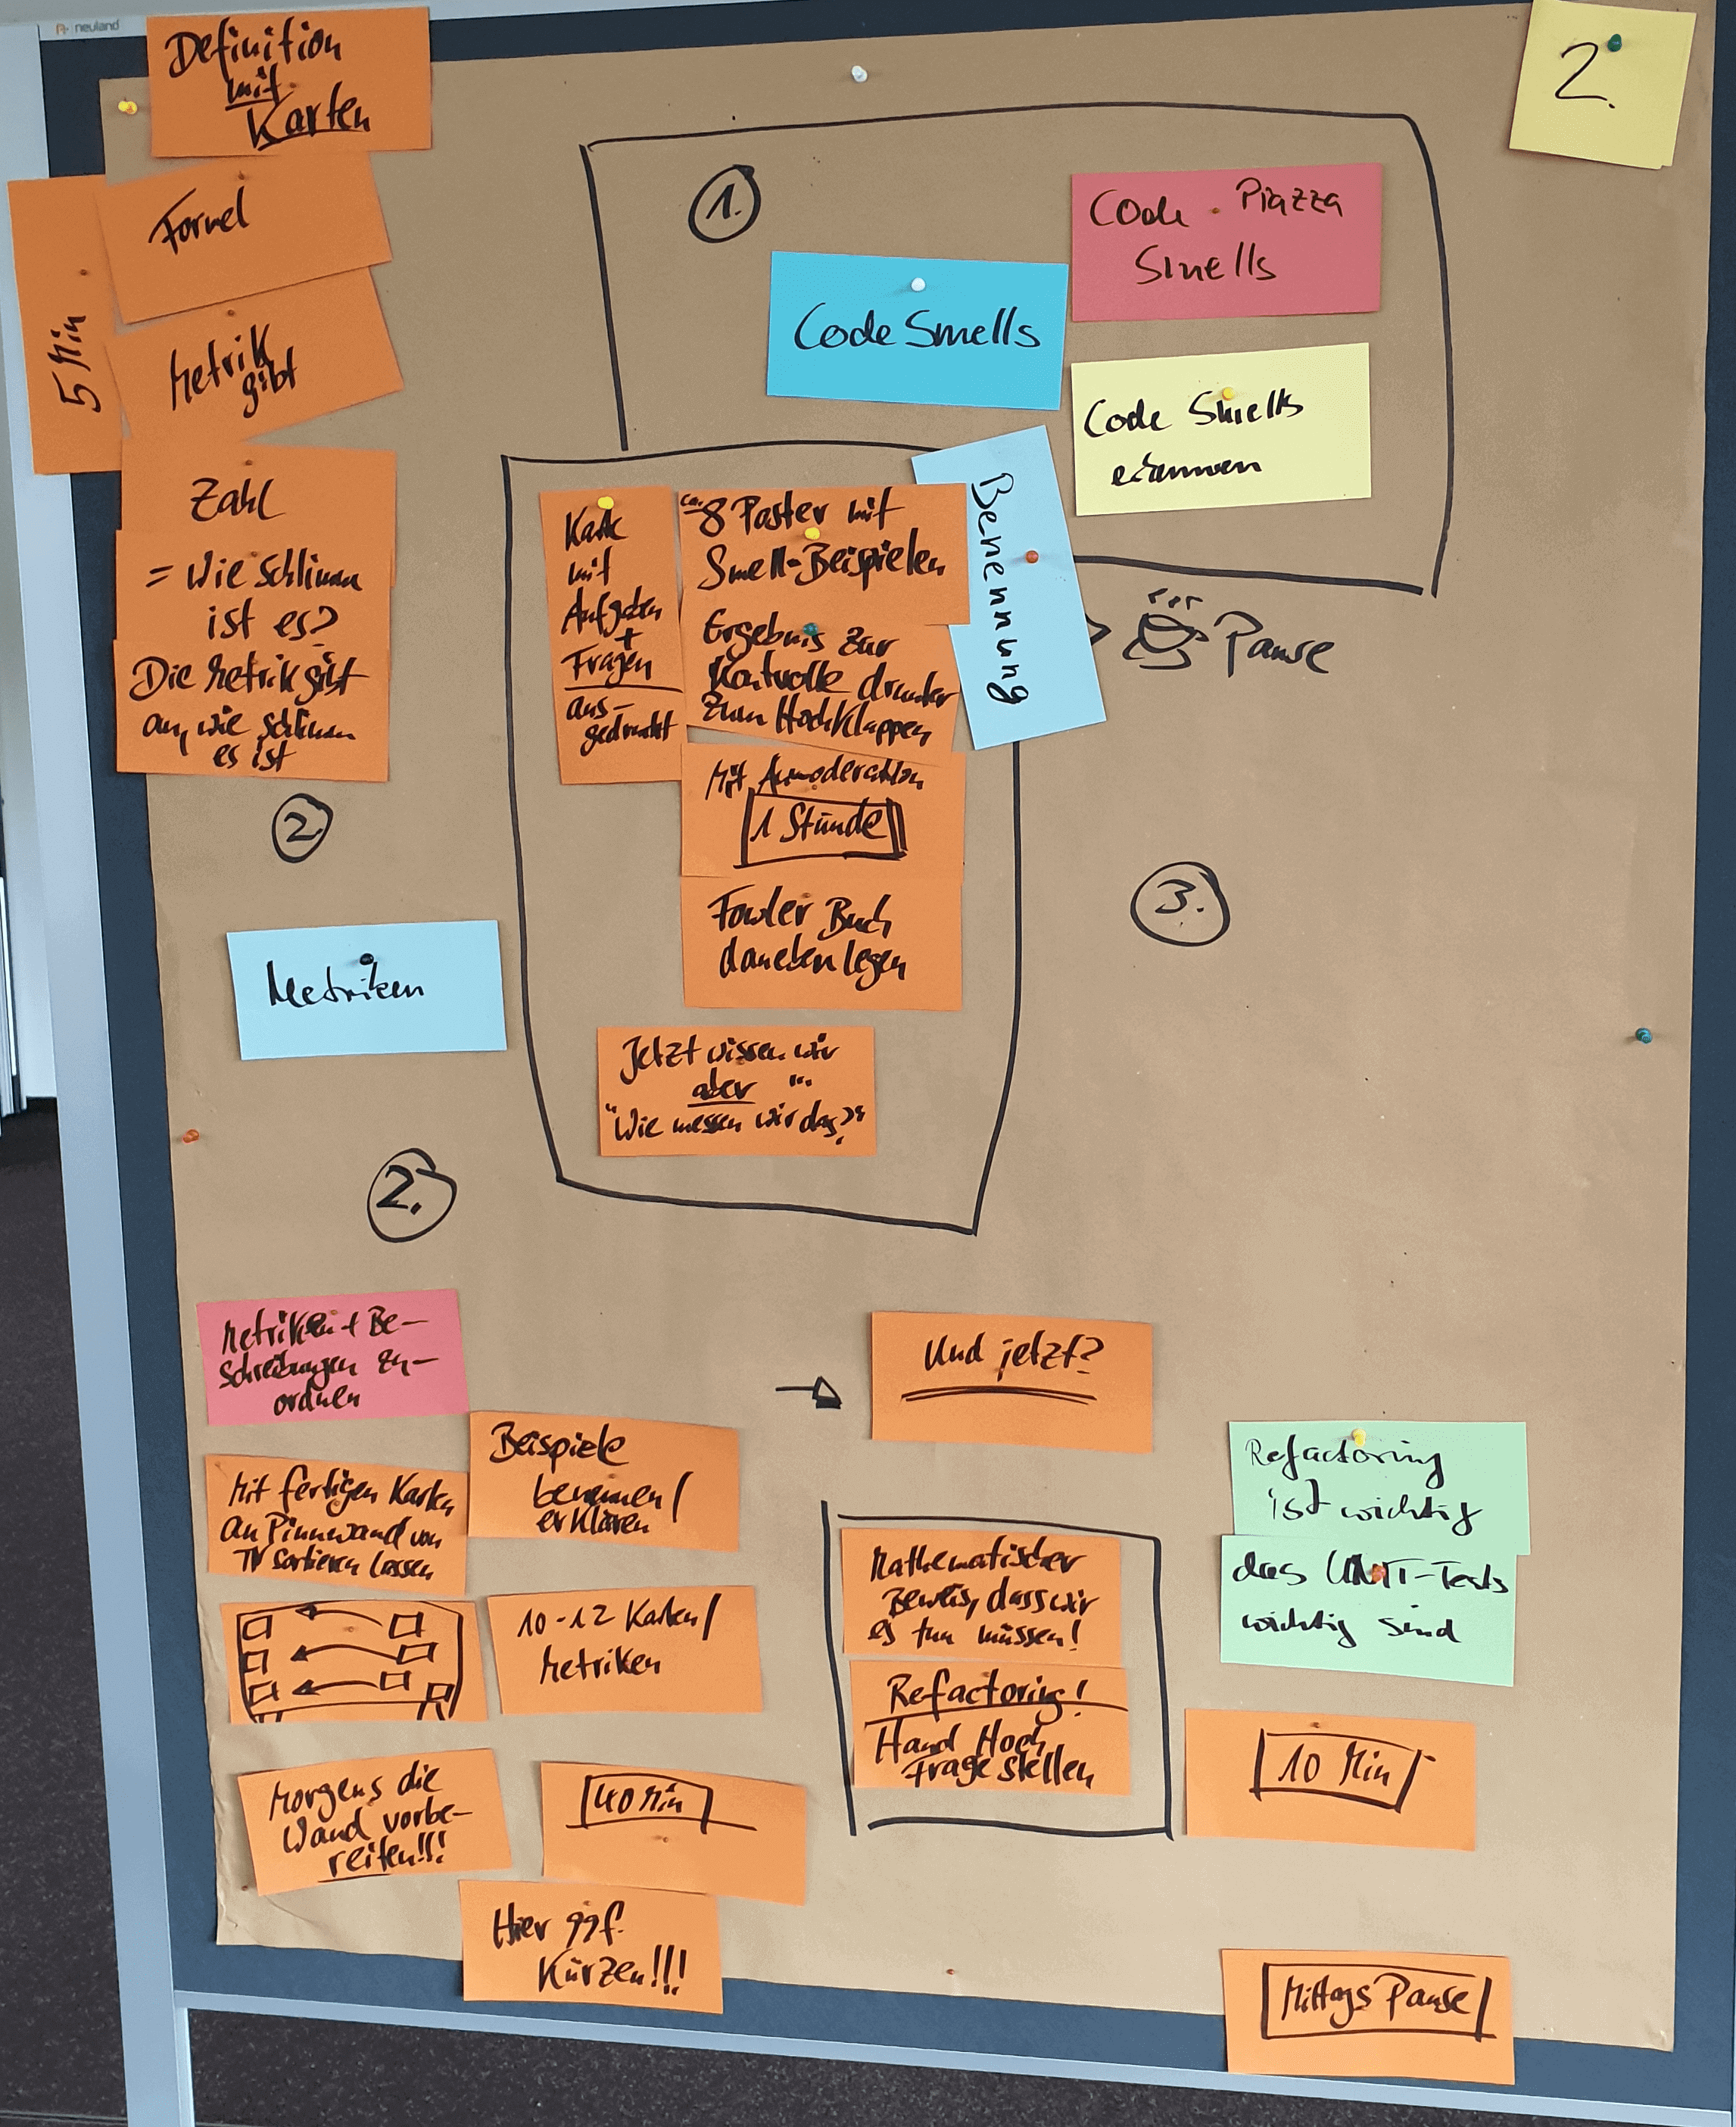 neuland
Definition
mit
Karten
5 Min
Formel
Metrik
gibt
Zahl
= Wie schlimm
ist es?
Die Metrik gibt
an, wie schlimm
es ist
2.
Metriken
2.
1.
Code Smells
Code Piazza
Smells
Code Smells
erkennen
Benennung
Pause
Karte
mit
Aufgaben
+
Fragen
aus-
gedruckt
ca. 8 Poster mit
Smell-Beispielen
Ergebnis zur
Kontrolle drunter
zum Hochklappen
Mit Anmoderation
1 Stunde
Fowler Buch
daneben legen
Jetzt wissen wir
aber ...
"Wie messen wir das?"
3.
2.
Metriken + Be-
schreibungen zu-
ordnen
Mit fertigen Karten
an Pinnwand von
TN sortieren lassen
Beispiele
benennen /
erklären
10-12 Karten /
Metriken
Morgens die
Wand vorbe-
reiten!!!
40 Min
Hier ggf.
Kürzen!!!
Und jetzt?
Mathematischer
Beweis, dass wir
es tun müssen!
Refactoring!
Hand Hoch
Frage stellen
Refactoring
ist wichtig
das UNIT-Tests
wichtig sind
10 Min
Mittags Pause